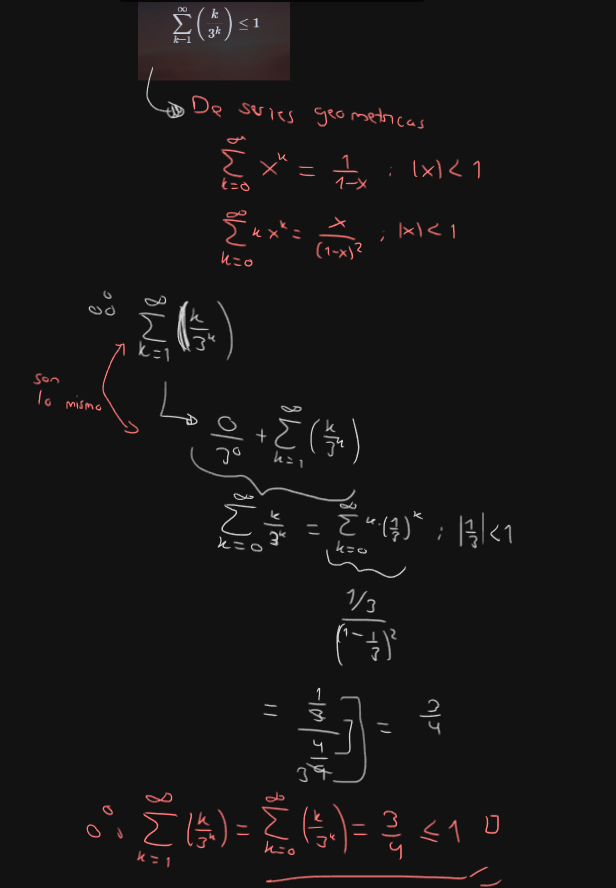 ∞
∑ (k/3^k) ≤ 1
k−1
De series geometricas
∑_{k=0}^{∞} x^k = 1/(1-x) ; |x| < 1
∑_{k=0}^{∞} k x^k = x/(1-x)^2 ; |x| < 1
∴ ∑_{k=1}^{∞} (k/3^k)
son
lo mismo
0/3^0 + ∑_{k=1}^{∞} (k/3^k)
∑_{k=0}^{∞} k/3^k = ∑_{k=0}^{∞} k·(1/3)^k ; |1/3| < 1
(1/3)/(1-1/3)^2
= (1/3)/(4/9) = 3/4
∴ ∑_{k=1}^{∞} (k/3^k) = ∑_{k=0}^{∞} (k/3^k) = 3/4 ≤ 1 □